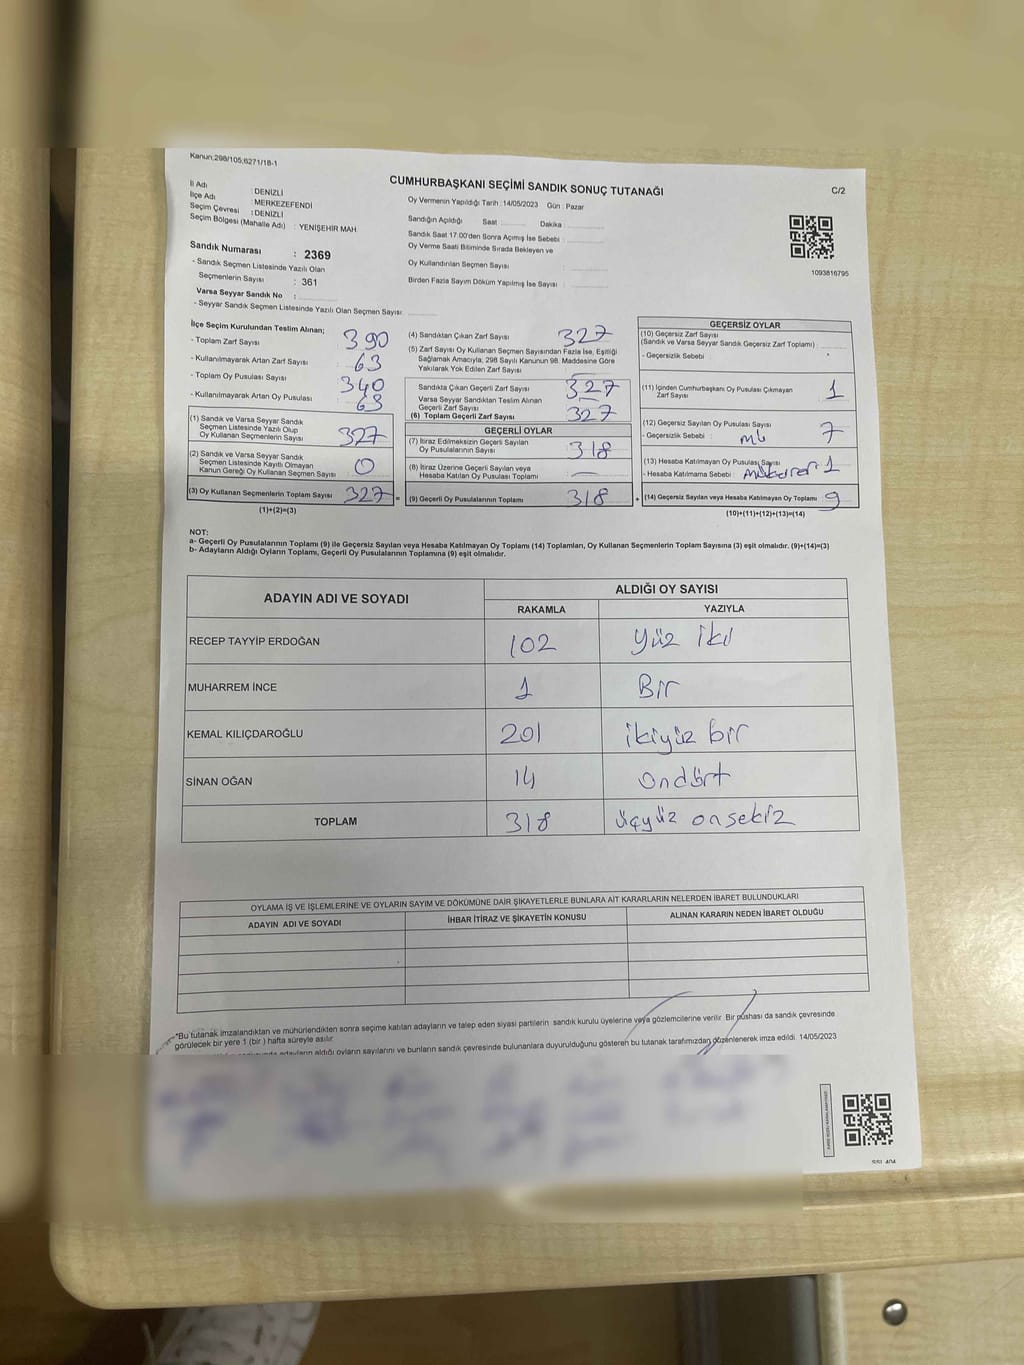 Kanun;298/105;6271/18-1
CUMHURBAŞKANI SEÇİMİ SANDIK SONUÇ TUTANAĞI
C/2
İl Adı : DENİZLİ
İlçe Adı : MERKEZEFENDİ
Seçim Çevresi : DENİZLİ
Seçim Bölgesi (Mahalle Adı) : YENİŞEHİR MAH.
Sandık Numarası : 2369
- Sandık Seçmen Listesinde Yazılı Olan
Seçmenlerin Sayısı : 361
Varsa Seyyar Sandık No :
- Seyyar Sandık Seçmen Listesinde Yazılı Olan Seçmen Sayısı
Oy Vermenin Yapıldığı Tarih : 14/05/2023 Gün : Pazar
Sandığın Açıldığı Saat Dakika :
Sandık Saat 17.00'den Sonra Açımış İse Sebebi :
Oy Verme Saati Bitiminde Sırada Bekleyen ve
Oy Kullandırılan Seçmen Sayısı :
Birden Fazla Sayım Döküm Yapılmış İse Sayısı :
1093816795
İlçe Seçim Kurulundan Teslim Alınan;
- Toplam Zarf Sayısı 390
- Kullanılmayarak Artan Zarf Sayısı 63
- Toplam Oy Pusulası Sayısı 340
- Kullanılmayarak Artan Oy Pusulası 63
(1) Sandık ve Varsa Seyyar Sandık
Seçmen Listesinde Yazılı Olup
Oy Kullanan Seçmenlerin Sayısı 327
(2) Sandık ve Varsa Seyyar Sandık
Seçmen Listesinde Kayıtlı Olmayan
Kanun Gereği Oy Kullanan Seçmen Sayısı 0
(3) Oy Kullanan Seçmenlerin Toplam Sayısı 327 =
(1)+(2)=(3)
(4) Sandıktan Çıkan Zarf Sayısı 327
(5) Zarf Sayısı Oy Kullanan Seçmen Sayısından Fazla İse, Eşitliği
Sağlamak Amacıyla, 298 Sayılı Kanunun 98. Maddesine Göre
Yakılarak Yok Edilen Zarf Sayısı
Sandıkta Çıkan Geçerli Zarf Sayısı 327
Varsa Seyyar Sandıktan Teslim Alınan
Geçerli Zarf Sayısı —
(6) Toplam Geçerli Zarf Sayısı 327
GEÇERLİ OYLAR
(7) İtiraz Edilmeksizin Geçerli Sayılan
Oy Pusulalarının Sayısı 318
(8) İtiraz Üzerine Geçerli Sayılan veya
Hesaba Katılan Oy Pusulası Toplamı —
(9) Geçerli Oy Pusulalarının Toplamı 318 +
GEÇERSİZ OYLAR
(10) Geçersiz Zarf Sayısı
(Sandık ve Varsa Seyyar Sandık Geçersiz Zarf Toplamı) :
- Geçersizlik Sebebi :
(11) İçinden Cumhurbaşkanı Oy Pusulası Çıkmayan
Zarf Sayısı 1
(12) Geçersiz Sayılan Oy Pusulası Sayısı 7
- Geçersizlik Sebebi :
(13) Hesaba Katılmayan Oy Pusulası Sayısı 1
- Hesaba Katılmama Sebebi : mükerrer
(14) Geçersiz Sayılan veya Hesaba Katılmayan Oy Toplamı 9
(10)+(11)+(12)+(13)=(14)
NOT:
a- Geçerli Oy Pusulalarının Toplamı (9) ile Geçersiz Sayılan veya Hesaba Katılmayan Oy Toplamı (14) Toplamları, Oy Kullanan Seçmenlerin Toplam Sayısına (3) eşit olmalıdır. (9)+(14)=(3)
b- Adayların Aldığı Oyların Toplamı, Geçerli Oy Pusulalarının Toplamına (9) eşit olmalıdır.
ADAYIN ADI VE SOYADI
ALDIĞI OY SAYISI
RAKAMLA YAZIYLA
RECEP TAYYİP ERDOĞAN 102 yüz iki
MUHARREM İNCE 1 Bir
KEMAL KILIÇDAROĞLU 201 ikiyüz bir
SİNAN OĞAN 14 ondört
TOPLAM 318 üçyüz onsekiz
OYLAMA İŞ VE İŞLEMLERİNE VE OYLARIN SAYIM VE DÖKÜMÜNE DAİR ŞİKAYETLERLE BUNLARA AİT KARARLARIN NELERDEN İBARET BULUNDUKLARI
ADAYIN ADI VE SOYADI İHBAR İTİRAZ VE ŞİKAYETİN KONUSU ALINAN KARARIN NEDEN İBARET OLDUĞU
*Bu tutanak imzalandıktan ve mühürlendikten sonra seçime katılan adayların ve talep eden siyasi partilerin sandık kurulu üyelerine veya gözlemcilerine verilir. Bir nüshası da sandık çevresinde
görülecek bir yere 1 (bir) hafta süreyle asılır.
adayların aldığı oyların sayılarını ve bunların sandık çevresinde bulunanlara duyurulduğunu gösteren bu tutanak tarafımızdan düzenlenerek imza edildi. 14/05/2023